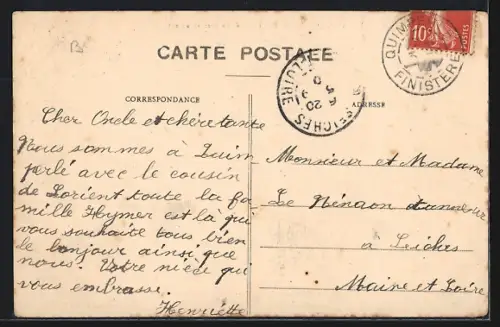 CARTE POSTALE
CORRESPONDANCE
ADRESSE
10
POSTES
QUIM
FINISTERE
SEICHES
20
Cher Oncle et chère tante
Nous sommes à Quim
perlé avec le cousin
de Lorient toute la fa
mille Hymer est là qui
vous souhaite tous bien
le bonjour ainsi que
nous. Votre nièce qui
vous embrasse.
Henriette
Monsieur et Madame
Le Ninaon
à Seiches
Maine et Loire